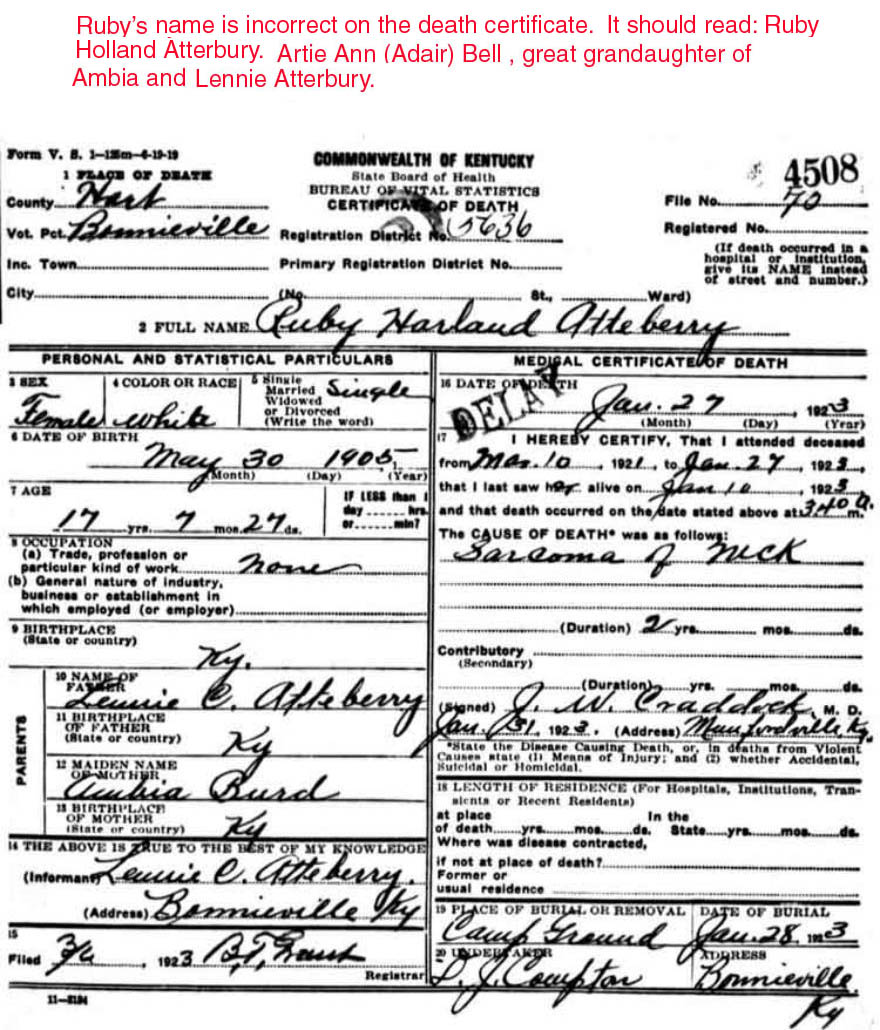 Ruby's name is incorrect on the death certificate. It should read: Ruby
Holland Atterbury. Artie Ann (Adair) Bell , great grandaughter of
Ambia and Lennie Atterbury.
Form V. S. 1—125m—4-19-19
COMMONWEALTH OF KENTUCKY
State Board of Health
BUREAU OF VITAL STATISTICS
CERTIFICATE OF DEATH
4508
1 PLACE OF DEATH
County Hart
File No. 70
Vot. Pct. Bonnieville
Registration District No. 5636
Registered No.
(If death occurred in a
hospital or institution,
give its NAME instead
of street and number.)
Inc. Town
Primary Registration District No.
City (No. St., Ward)
2 FULL NAME Ruby Harland Atteberry
PERSONAL AND STATISTICAL PARTICULARS
3 SEX
Female
4 COLOR OR RACE
White
5 Single
Married
Widowed
or Divorced
(Write the word)
Single
6 DATE OF BIRTH
May 30 1905
(Month) (Day) (Year)
7 AGE
17 yrs. 7 mos. 27 ds.
IF LESS than 1
day ...... hrs.
or ...... min?
8 OCCUPATION
(a) Trade, profession or
particular kind of work none
(b) General nature of industry,
business or establishment in
which employed (or employer)
9 BIRTHPLACE
(State or country)
Ky.
PARENTS
10 NAME OF
FATHER
Lennie C. Atteberry
11 BIRTHPLACE
OF FATHER
(State or country)
Ky
12 MAIDEN NAME
OF MOTHER
Ambia Burd
13 BIRTHPLACE
OF MOTHER
(State or country)
Ky
14 THE ABOVE IS TRUE TO THE BEST OF MY KNOWLEDGE
(Informant) Lennie C. Atteberry.
(Address) Bonnieville Ky
15
Filed , 1923
Registrar
11—3184
MEDICAL CERTIFICATE OF DEATH
16 DATE OF DEATH
DELAY
Jan. 27 , 1923
(Month) (Day) (Year)
17 I HEREBY CERTIFY, That I attended deceased
from Mar. 10 , 1921, to Jan. 27 , 1923,
that I last saw her alive on Jan 10 , 1923
and that death occurred on the date stated above at 3.40 a. m.
The CAUSE OF DEATH* was as follows:
Sarcoma of Neck
(Duration) 2 yrs. mos. ds.
Contributory
(Secondary)
(Duration) yrs. mos. ds.
(Signed) J. W. Craddock, M. D.
Jan. 31, 1923. (Address) Munfordville Ky.
*State the Disease Causing Death, or, in deaths from Violent
Causes state (1) Means of Injury; and (2) whether Accidental,
Suicidal or Homicidal.
18 LENGTH OF RESIDENCE (For Hospitals, Institutions, Tran-
sients or Recent Residents)
at place In the
of death yrs. mos. ds. State yrs. mos. ds.
Where was disease contracted,
if not at place of death?
Former or
usual residence
19 PLACE OF BURIAL OR REMOVAL
Camp Ground
DATE OF BURIAL
Jan. 28. 1923
20 UNDERTAKER
D. J. Compton
ADDRESS
Bonnieville
Ky